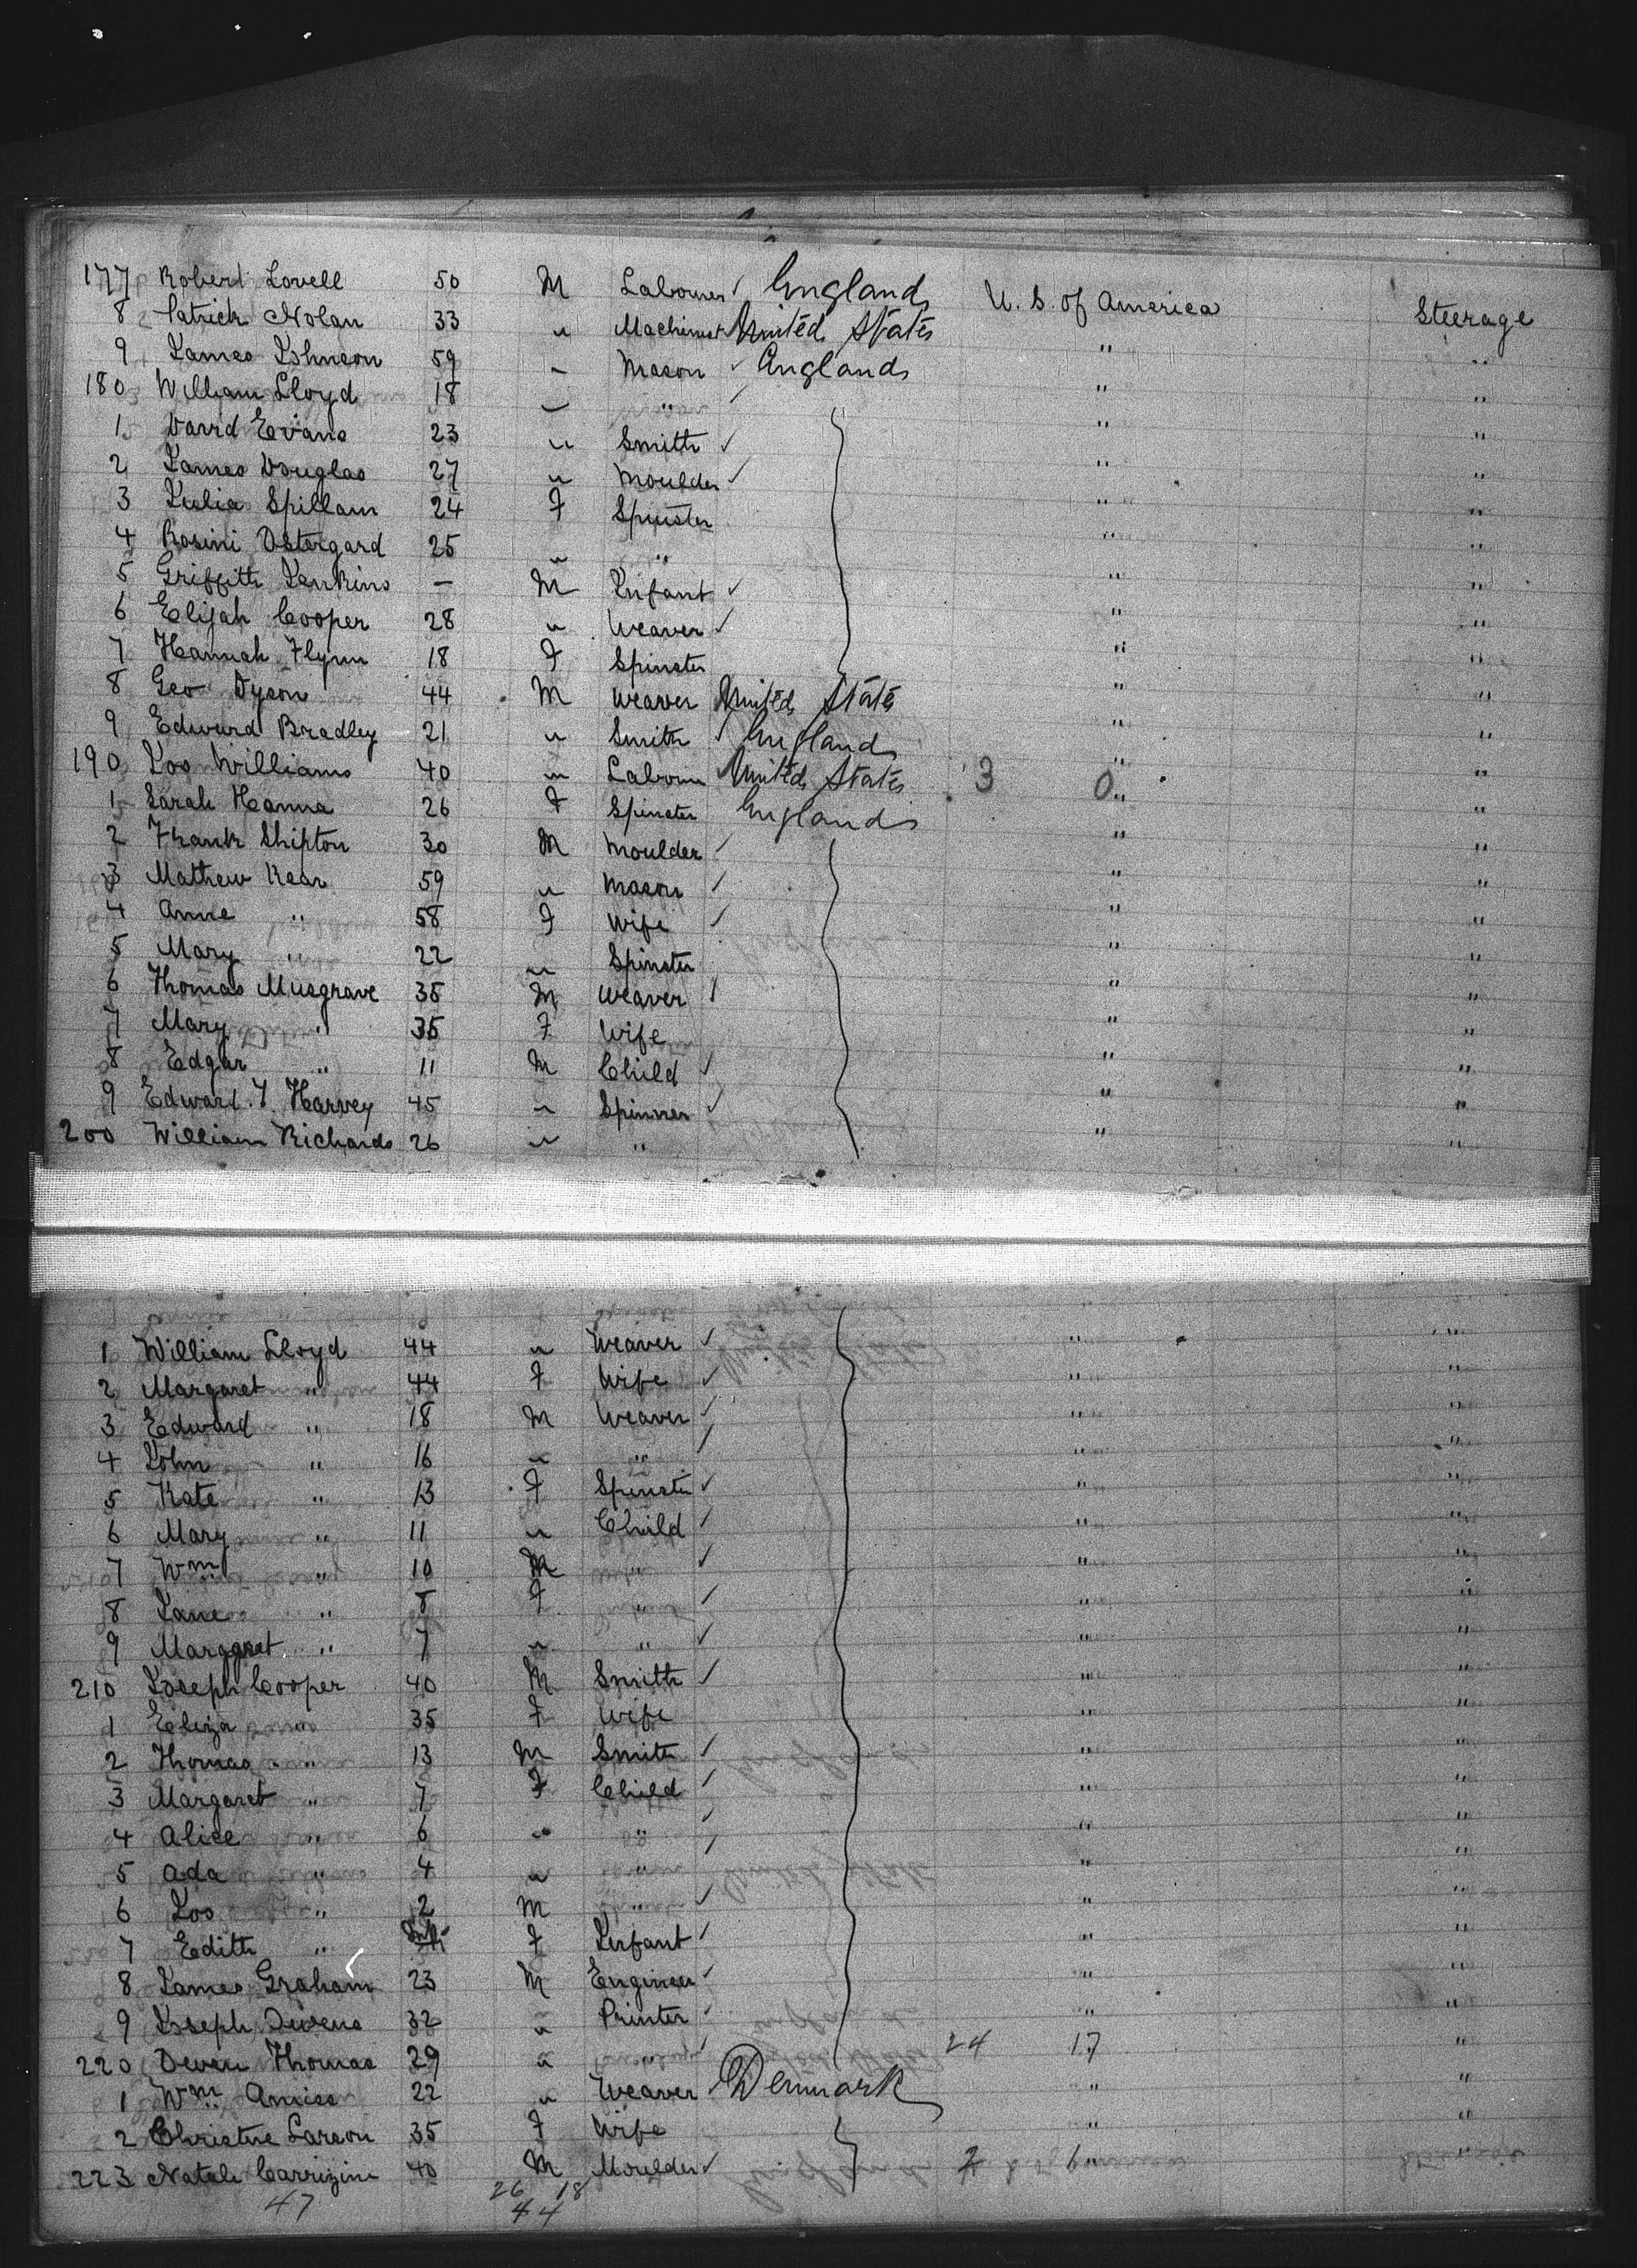 177 Robert Lovell 50 M Labourer England U. S. of America Steerage
8 Patrick Nolan 33 " Machinist United States " "
9 James Johnson 59 " Mason England " "
180 William Lloyd 18 " " " "
1 David Evans 23 " Smith " "
2 James Douglas 27 " Moulder " "
3 Julia Spillam 24 F Spinster " "
4 Rosini Ostergard 25 " " " "
5 Griffith Jenkins — M Infant " "
6 Elijah Cooper 28 " Weaver " "
7 Hannah Flynn 18 F Spinster " "
8 Geo Dyson 44 M Weaver United States " "
9 Edward Bradley 21 " Smith England " "
190 Jos Williams 40 " Labourer United States 3 0 " "
1 Sarah Hanna 26 F Spinster England " "
2 Frank Shipton 30 M Moulder " "
3 Mathew Kear 59 " Mason " "
4 Anne " 58 F Wife " "
5 Mary " 22 " Spinster " "
6 Thomas Musgrave 35 M Weaver " "
7 Mary " 35 F Wife " "
8 Edgar " 11 M Child " "
9 Edward. J. Harvey 45 " Spinner " "
200 William Richards 26 " " " "
1 William Lloyd 44 " Weaver " "
2 Margaret " 44 F Wife " "
3 Edward " 18 M Weaver " "
4 John " 16 " " " "
5 Kate " 13 F Spinster " "
6 Mary " 11 " Child " "
7 Wm " 10 M " " "
8 Jane " 8 F " " "
9 Margaret " 7 " " " "
210 Joseph Cooper 40 M Smith " "
1 Eliza 35 F Wife " "
2 Thomas " 13 M Smith " "
3 Margaret " 7 F Child " "
4 Alice " 6 " " " "
5 Ada " 4 " " " "
6 Jos " 2 M " " "
7 Edith " Inft F Infant " "
8 James Graham 23 M Engineer " "
9 Joseph Owens 32 " Printer " "
220 Owen Thomas 29 " " 24 17 "
1 Wm Amiss 22 " Weaver Denmark " "
2 Christine Larson 35 F Wife " "
223 Natale Carrizini 40 M Moulder 2 "
47 26 18
44